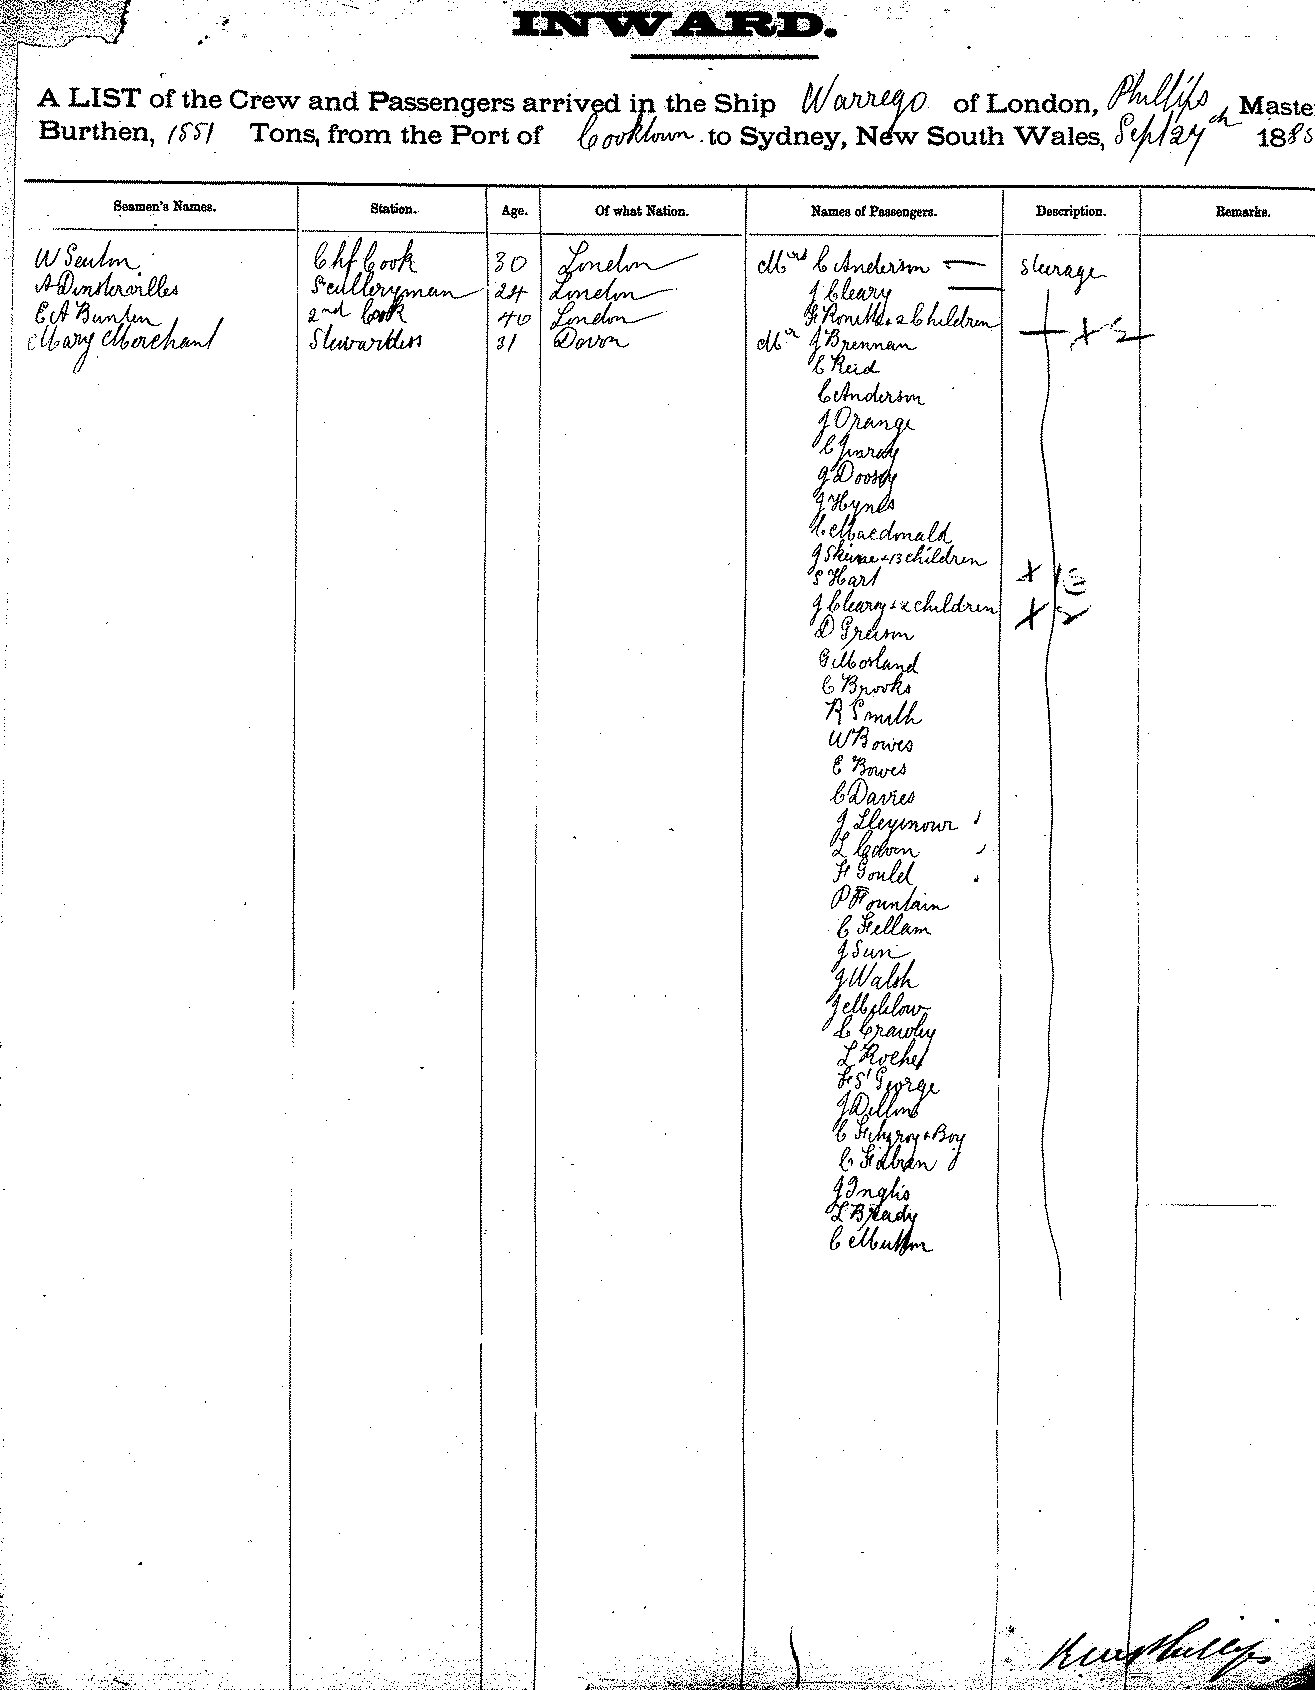 INWARD.
A LIST of the Crew and Passengers arrived in the Ship Warrego of London, Phillips, Maste
Burthen, 1551 Tons, from the Port of Cooktown to Sydney, New South Wales, Sept 27th 188
Seamen's Names. Station. Age. Of what Nation. Names of Passengers. Description. Remarks.
W Seuton Chf Cook 30 London Mrs C Anderson — Steerage
A Dinsterville Sculleryman 24 London J Cleary —
E A Bunten 2nd Cook 40 London + 2 Children + x 2
Mary Merchant Stewardess 31 Devon Mr J Brennan
C Reid
C Anderson
J Orange
C
J
J Hynes
C Macdonald
J + 13 children x 13
S Hart
J Cleary + 2 children x 2
D
G Morland
C Brooks
R Smith
W Bowes
E Bowes
C Davies
J
L
F Gould
P Fountain
C Fellam
J Sun
J Walsh
J
C Crawley
L Roche
F St George
J Dillon
C Fitzroy + Boy
C
J Inglis
L Brady
C
Phillips